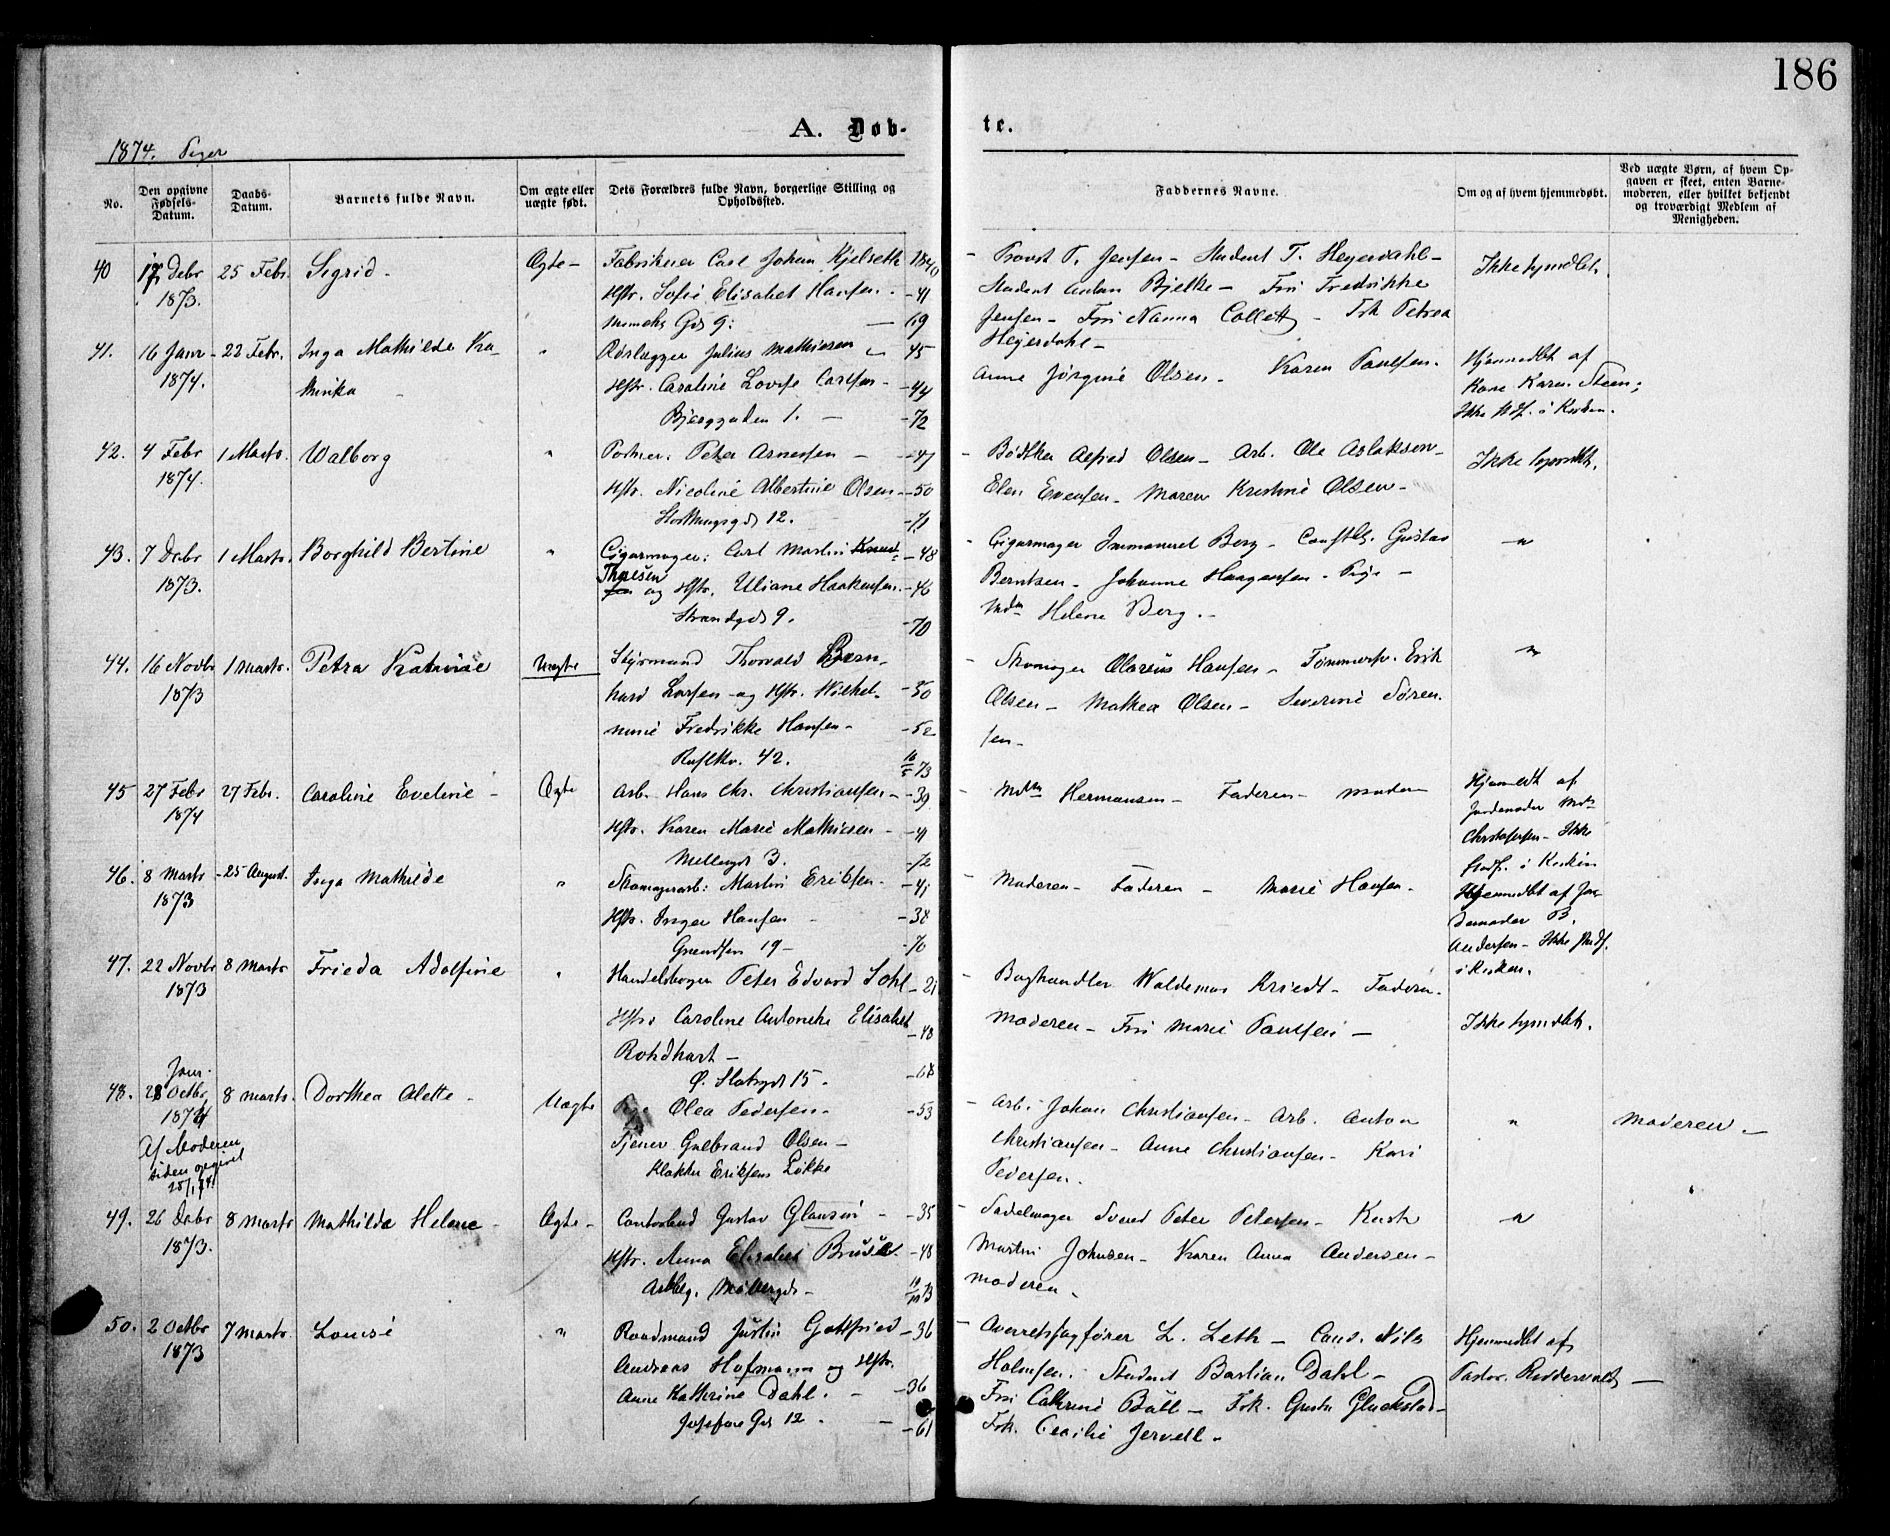 186
A. Døb-
te.
1874. Piger
No.
Den opgivne Fødsels-Datum.
Daabs-Datum.
Barnets fulde Navn.
Om ægte eller uægte født.
Dets Forældres fulde Navn, borgerlige Stilling og Opholdssted.
Faddernes Navne.
Om og af hvem hjemmedøbt.
Ved uægte Børn, af hvem Op-
gaven er skeet, enten Barne-
moderen, eller hvilket bekjendt
og troværdigt Medlem af
Menigheden.
40 17 Debr 25 Febr. Sigrid - Ægte - Fabrikeier Carl Johan Kjelseth 1840 - Provst P. Jensen - Student T. Heyerdahl - Ikke hjmdbt.
1873. Hstr. Sofie Elisabet Hansen. - 41 Student Anton Bjelke - Frü Fredrikke
Gd 9: - 69 Jensen - Frü Nanna Collett - Frk Petrea
Heyerdahl -
41. 16 Janr - 22 Febr. Inga Mathilde Ka- " Rørlægger Julius Mathiesen - 45 Anne Jørgine Olsen - Karen Paulsen. Hjemmedbt af
1874. minka - Hstr. Caroline Lovise Carlsen - - 44 Kone Karen Steen;
Bjerggaden 1. - - 72 Ikke stdf. i Kirken.
42. 4 Febr 1 Marts. Walborg " Portner: Peter Arnesen - - 47 - Bødtker Alfred Olsen - Arb. Ole Aslaksen - Ikke hjemdbt.
1874. Hstr. Nicoline Albertine Olsen - 50 Elen Evensen - Maren Kristine Olsen -
Storthingsgd 12. - 71
43. 7 Debr 1 Marts. Borghild Bertine " Cigarmager: Carl Martin Knud- - 48 - Cigarmager Immanuel Berg - Gustav "
1873. Thoesen sen og Hstr. Uliane Haakensen. - 46 Berntsen - Johanne Haagensen - Pige -
Strandgd 9. - 70 Mdm Helene Berg. -
44. 16 Novbr 1 Marts. Petra Katrine Uægte Styrmand Thorvald Bern- - Skomager Olavus Hansen - Tømmerm. Erik "
1873 hard Larsen - og Hstr. Wilhel- - 50 Olsen - Mathea Olsen - Severine Søren-
mine Fredrikke Hansen - - 52 sen -
Ruslkv. 42. 73
45 27 Febr 27 Febr. Caroline Eveline - Ægte Arb. Hans Chr. Christiansen - - 39 - Mdm Hermansen - Faderen - Moderen Hjemmedbt af
1874 Hstr. Karen Marie Mathiesen - - 41 Jordmoder Mdm
Mellemgd 3. - 72 Christofersen - Ikke
Stadf. i Kirken
46. 8 Marts - 25 August. Inga Mathilde " Skomagerarb: Martin Eriksen. - 41 - Moderen - Faderen - Marie Hansen. Hjemmedbt af Jor-
1873 Hstr. Inger Hansen - - 38 demoder B.
Grundsen 19 - - 70 Andersen - Ikke stadf.
i Kirken.
47. 22 Novbr 8 Marts Frieda Adolfine " Handelsborger Peter Edvard Sohl - 21 - Boghandler Waldemar Kriedt - Faderen.
1873 Hstr. Caroline Antonette Elisabet - 48 Moderen - Frü Marie Paulsen - Ikke hjmdbt.
Rohdhart -
Ø. Slotsgd 15. - 68
Janr.
48. 28 Octbr 8 Marts. Dorthea Alette - Uægte Pige Olea Pedersen - - 53 - Arb. Johan Christiansen - Arb. Anton " Moderen. -
1874 Tjener Gulbrand Olsen - Christiansen - Anne Christiansen - Kari
Af Moderen Klokker Eriksens Løkke Pedersen.
siden opgivet
25/1 74!
49. 26 Debr 8 Marts Mathilda Helene - Ægte - Contorbud Gustav Glansen - - 35 - Sadelmager Svend Peter Petersen - Kusk "
1873. Hstr. Anna Elisabet Bruse. - 48 Martin Johnsen - Karen Anna Andersen -
Møllergd - 73 Moderen -
50. 2 Octbr 7 Marts. Louise " Raadmand Justin Gottfried - 36 - Overretssagfører L. Leth - Cand. Nils Hjemmedbt af
1873 Andreas Hofmann og Hstr. Holmsen. Student Bastian Dahl - Pastor Reddervoldt -
Anne Kathrine Dahl. - - 36 Frü Cathrine Bull - Frk. Gusta Gluckstad -
Josefine Gd 12. - - 61 Frk. Cecilie Jervell -